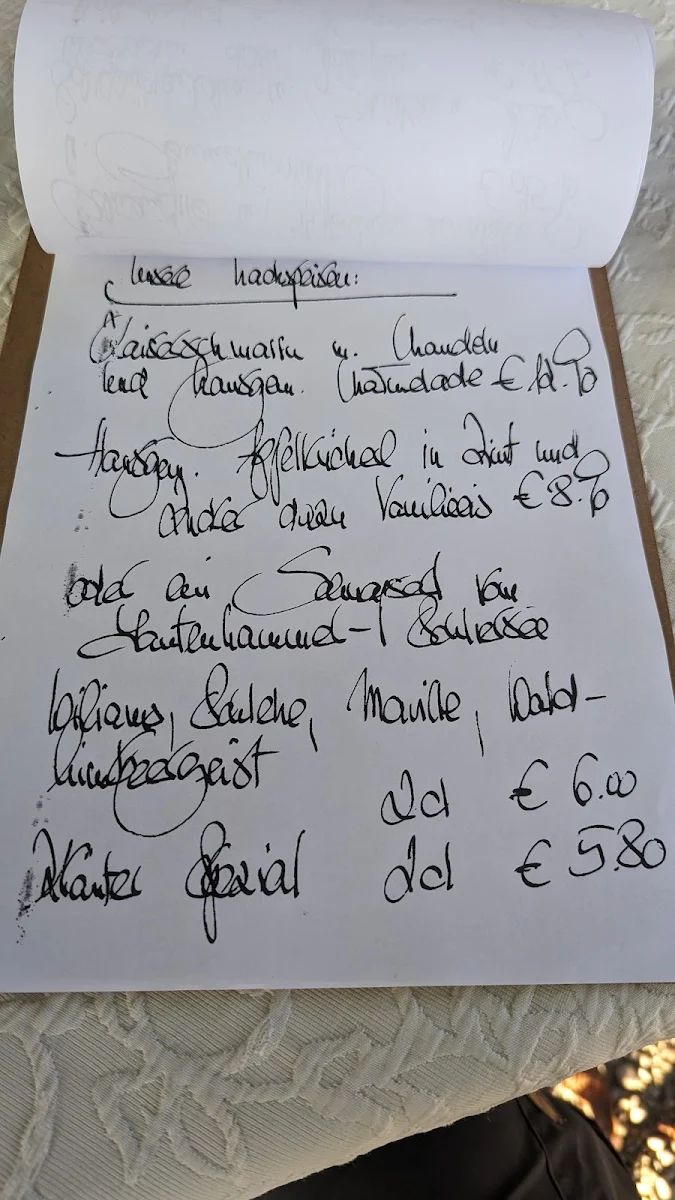 Unsere Nachspeisen:
Kaiserschmarrn m. Mandeln
und hausgem. Marmelade € 12.90
Hausgem. Apfelkücherl in Zimt und
Zucker dazu Vanilleeis € 8.90
oder ein Schnapserl vom
Lantenhammer - Schliersee
Williams, Schlehe, Marille, Wald-
himbeergeist 2cl € 6.00
Kräuter Spezial 2cl € 5.80